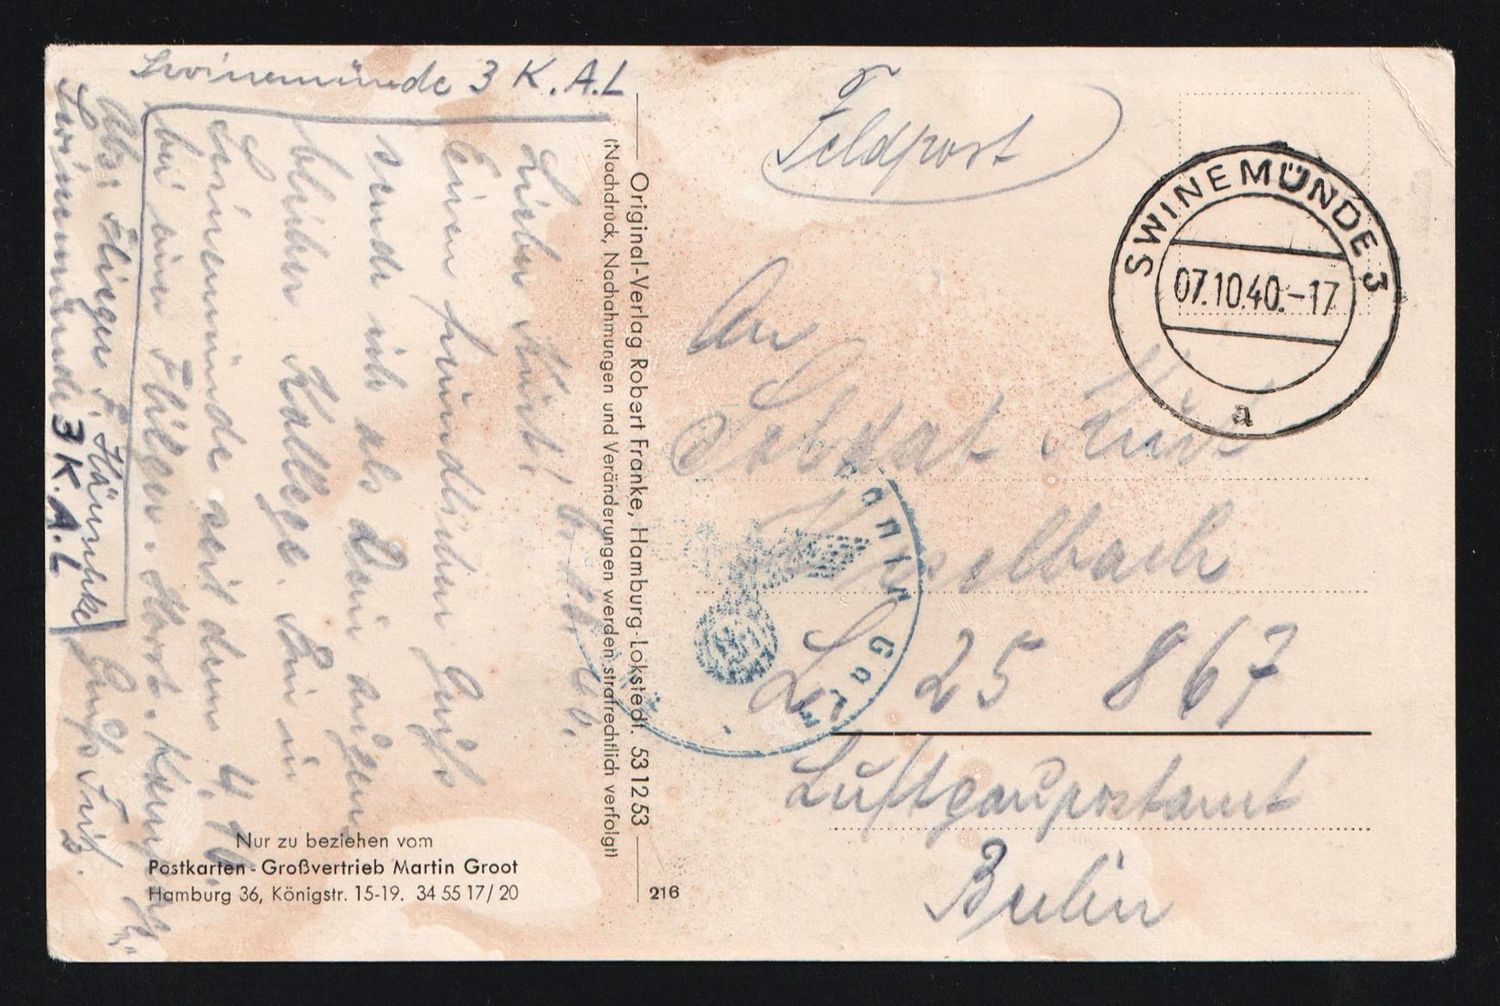 Swinemünde 3 K.A.L
Abs: Flieger F.
Swinemünde 3 K.A.L
Lieber Kurt! 6.10.40.
Einen freundlichen Gruß
sende ich als Dein
lieber Kollege. Bin in
Swinemünde seit dem 4.10.
bei einer Horst.
Gruß Fritz.
Nur zu beziehen vom
Postkarten-Großvertrieb Martin Groot
Hamburg 36, Königstr. 15-19. 34 55 17/20
Original-Verlag Robert Franke, Hamburg-Lokstedt. 53 12 53
(Nachdruck, Nachahmungen und Veränderungen werden strafrechtlich verfolgt)
216
Feldpost
SWINEMÜNDE 3
07.10.40.-17
a
An
Soldat Kurt
L 25 867
Luftgaupostamt
Berlin